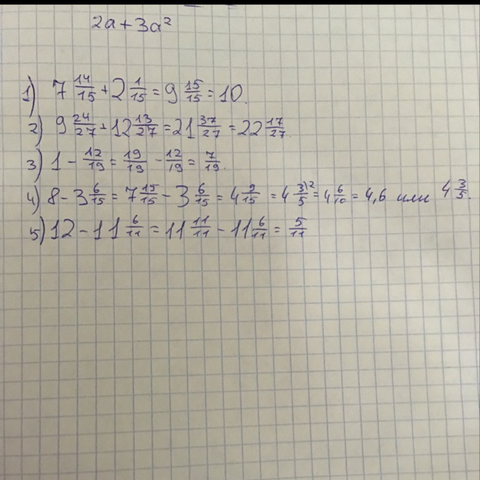 2a+3a²
1) 7 14/15 + 2 1/15 = 9 15/15 = 10.
2) 9 24/27 + 12 13/27 = 21 37/27 = 22 17/27.
3) 1 - 12/19 = 19/19 - 12/19 = 7/19.
4) 8 - 3 6/15 = 7 15/15 - 3 6/15 = 4 9/15 = 4 3/5 )² = 4 6/10 = 4,6 или 4 3/5.
5) 12 - 11 6/11 = 11 11/11 - 11 6/11 = 5/11